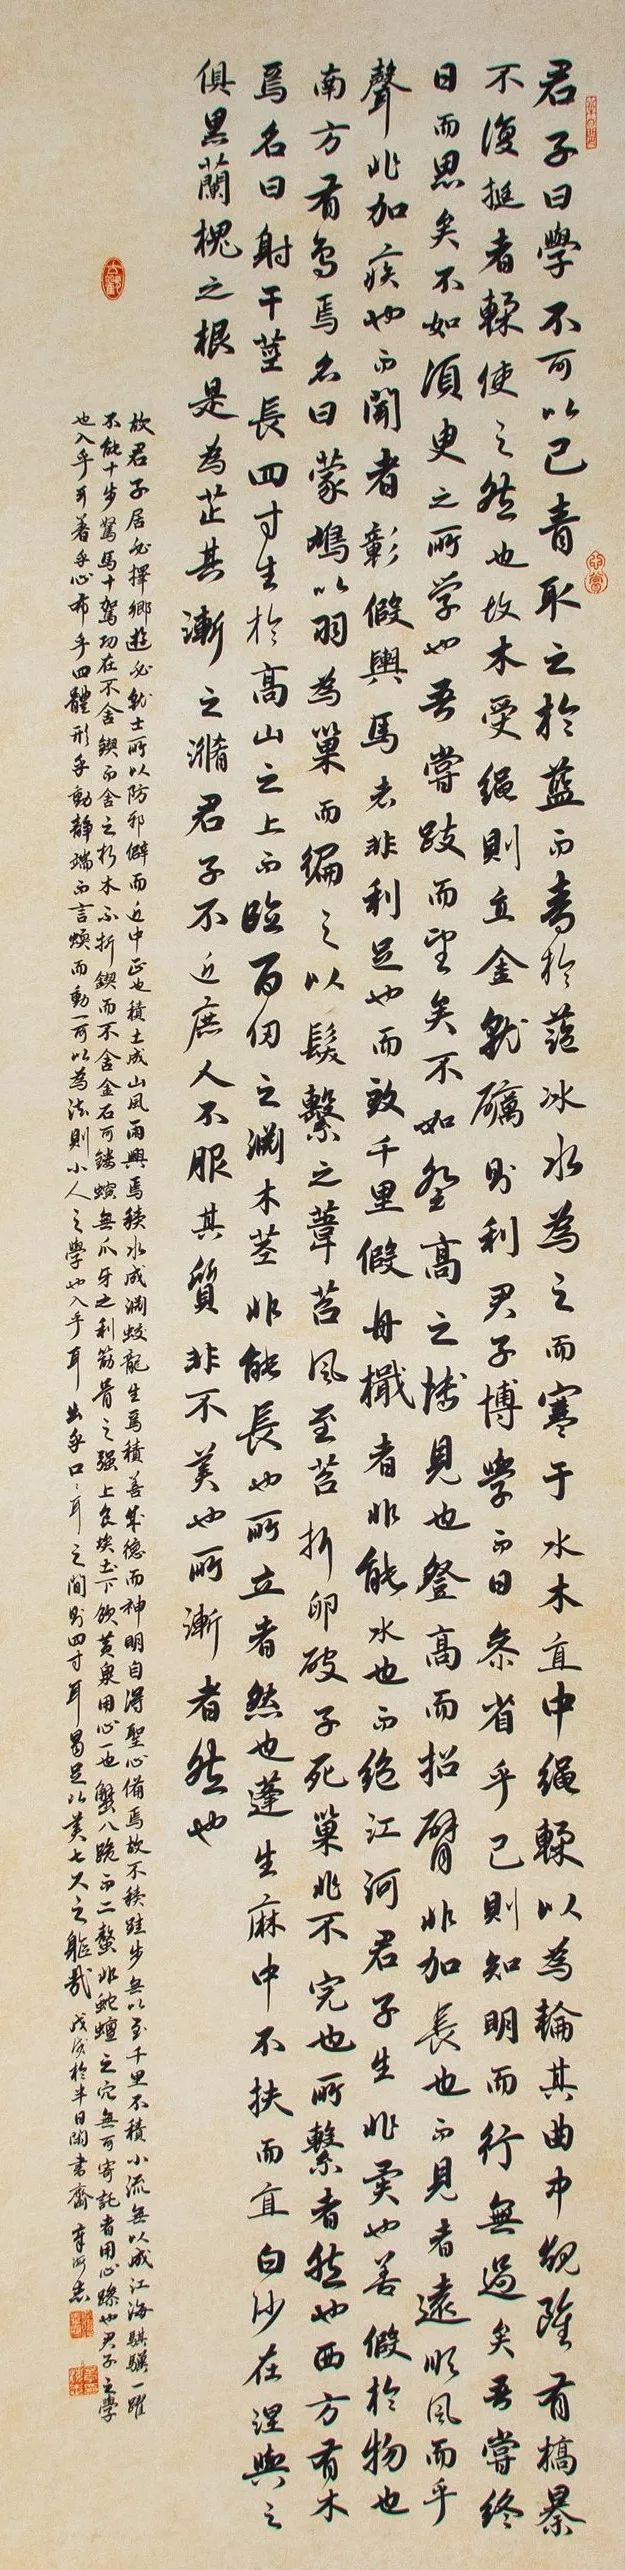 君子曰學不可以已青取之於藍而青於藍冰水為之而寒于水木直中繩輮以為輪其曲中規雖有槁暴
不復挺者輮使之然也故木受繩則直金就礪則利君子博學而日參省乎己則知明而行無過矣吾嘗終
日而思矣不如須臾之所學也吾嘗跂而望矣不如登高之博見也登高而招臂非加長也而見者遠順風而乎
聲非加疾也而聞者彰假輿馬者非利足也而致千里假舟檝者非能水也而絕江河君子生非異也善假於物也
南方有鳥焉名曰蒙鳩以羽為巢而編之以髮繫之葦苕風至苕折卵破子死巢非不完也所繫者然也西方有木
焉名曰射干莖長四寸生於高山之上而臨百仞之淵木莖非能長也所立者然也蓬生麻中不扶而直白沙在涅與之
俱黑蘭槐之根是為芷其漸之滫君子不近庶人不服其質非不美也所漸者然也
故君子居必擇鄉遊必就士所以防邪僻而近中正也積土成山風雨興焉積水成淵蛟龍生焉積善成德而神明自得聖心備焉故不積跬步無以至千里不積小流無以成江海騏驥一躍
不能十步駑馬十駕功在不舍鍥而舍之朽木不折鍥而不舍金石可鏤螾無爪牙之利筋骨之強上食埃土下飲黃泉用心一也蟹八跪而二螯非蛇蟺之穴無可寄託者用心躁也君子之學
也入乎耳著乎心布乎四體形乎動靜端而言蝡而動一可以為法則小人之學也入乎耳出乎口口耳之間則四寸耳曷足以美七尺之軀哉 戊戌於半日閑書齋